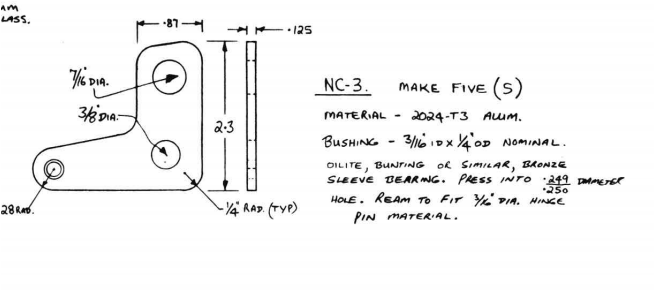 AM
LASS.
.87
.125
7/16" DIA.
3/8" DIA.
2.3
28 RAD.
1/4" RAD. (TYP)
NC-3. MAKE FIVE (5)
MATERIAL - 2024-T3 ALUM.
BUSHING - 3/16" ID X 1/4" OD NOMINAL.
OILITE, BUNTING OR SIMILAR, BRONZE
SLEEVE BEARING. PRESS INTO .249 DIAMETER
.250
HOLE. REAM TO FIT 3/16" DIA. HINGE
PIN MATERIAL.